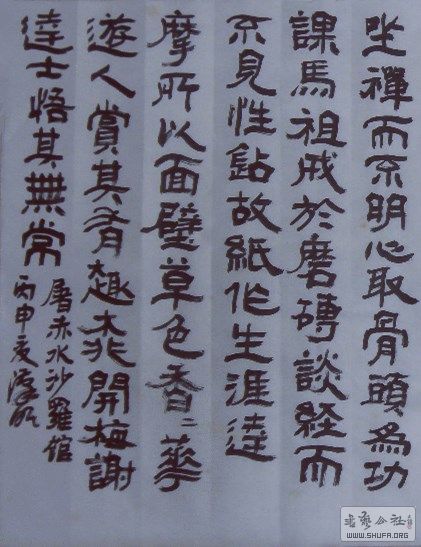 坐禪而不明心取骨頭為功
課馬祖戒於磨磚談経而
不見性鉆故紙作生涯達
摩所以面璧草色香〻華
遊人賞其有趣桃開梅謝
達士悟其無常
屠赤水沙羅館
丙申夏
书艺公社
WWW.SHUFA.ORG